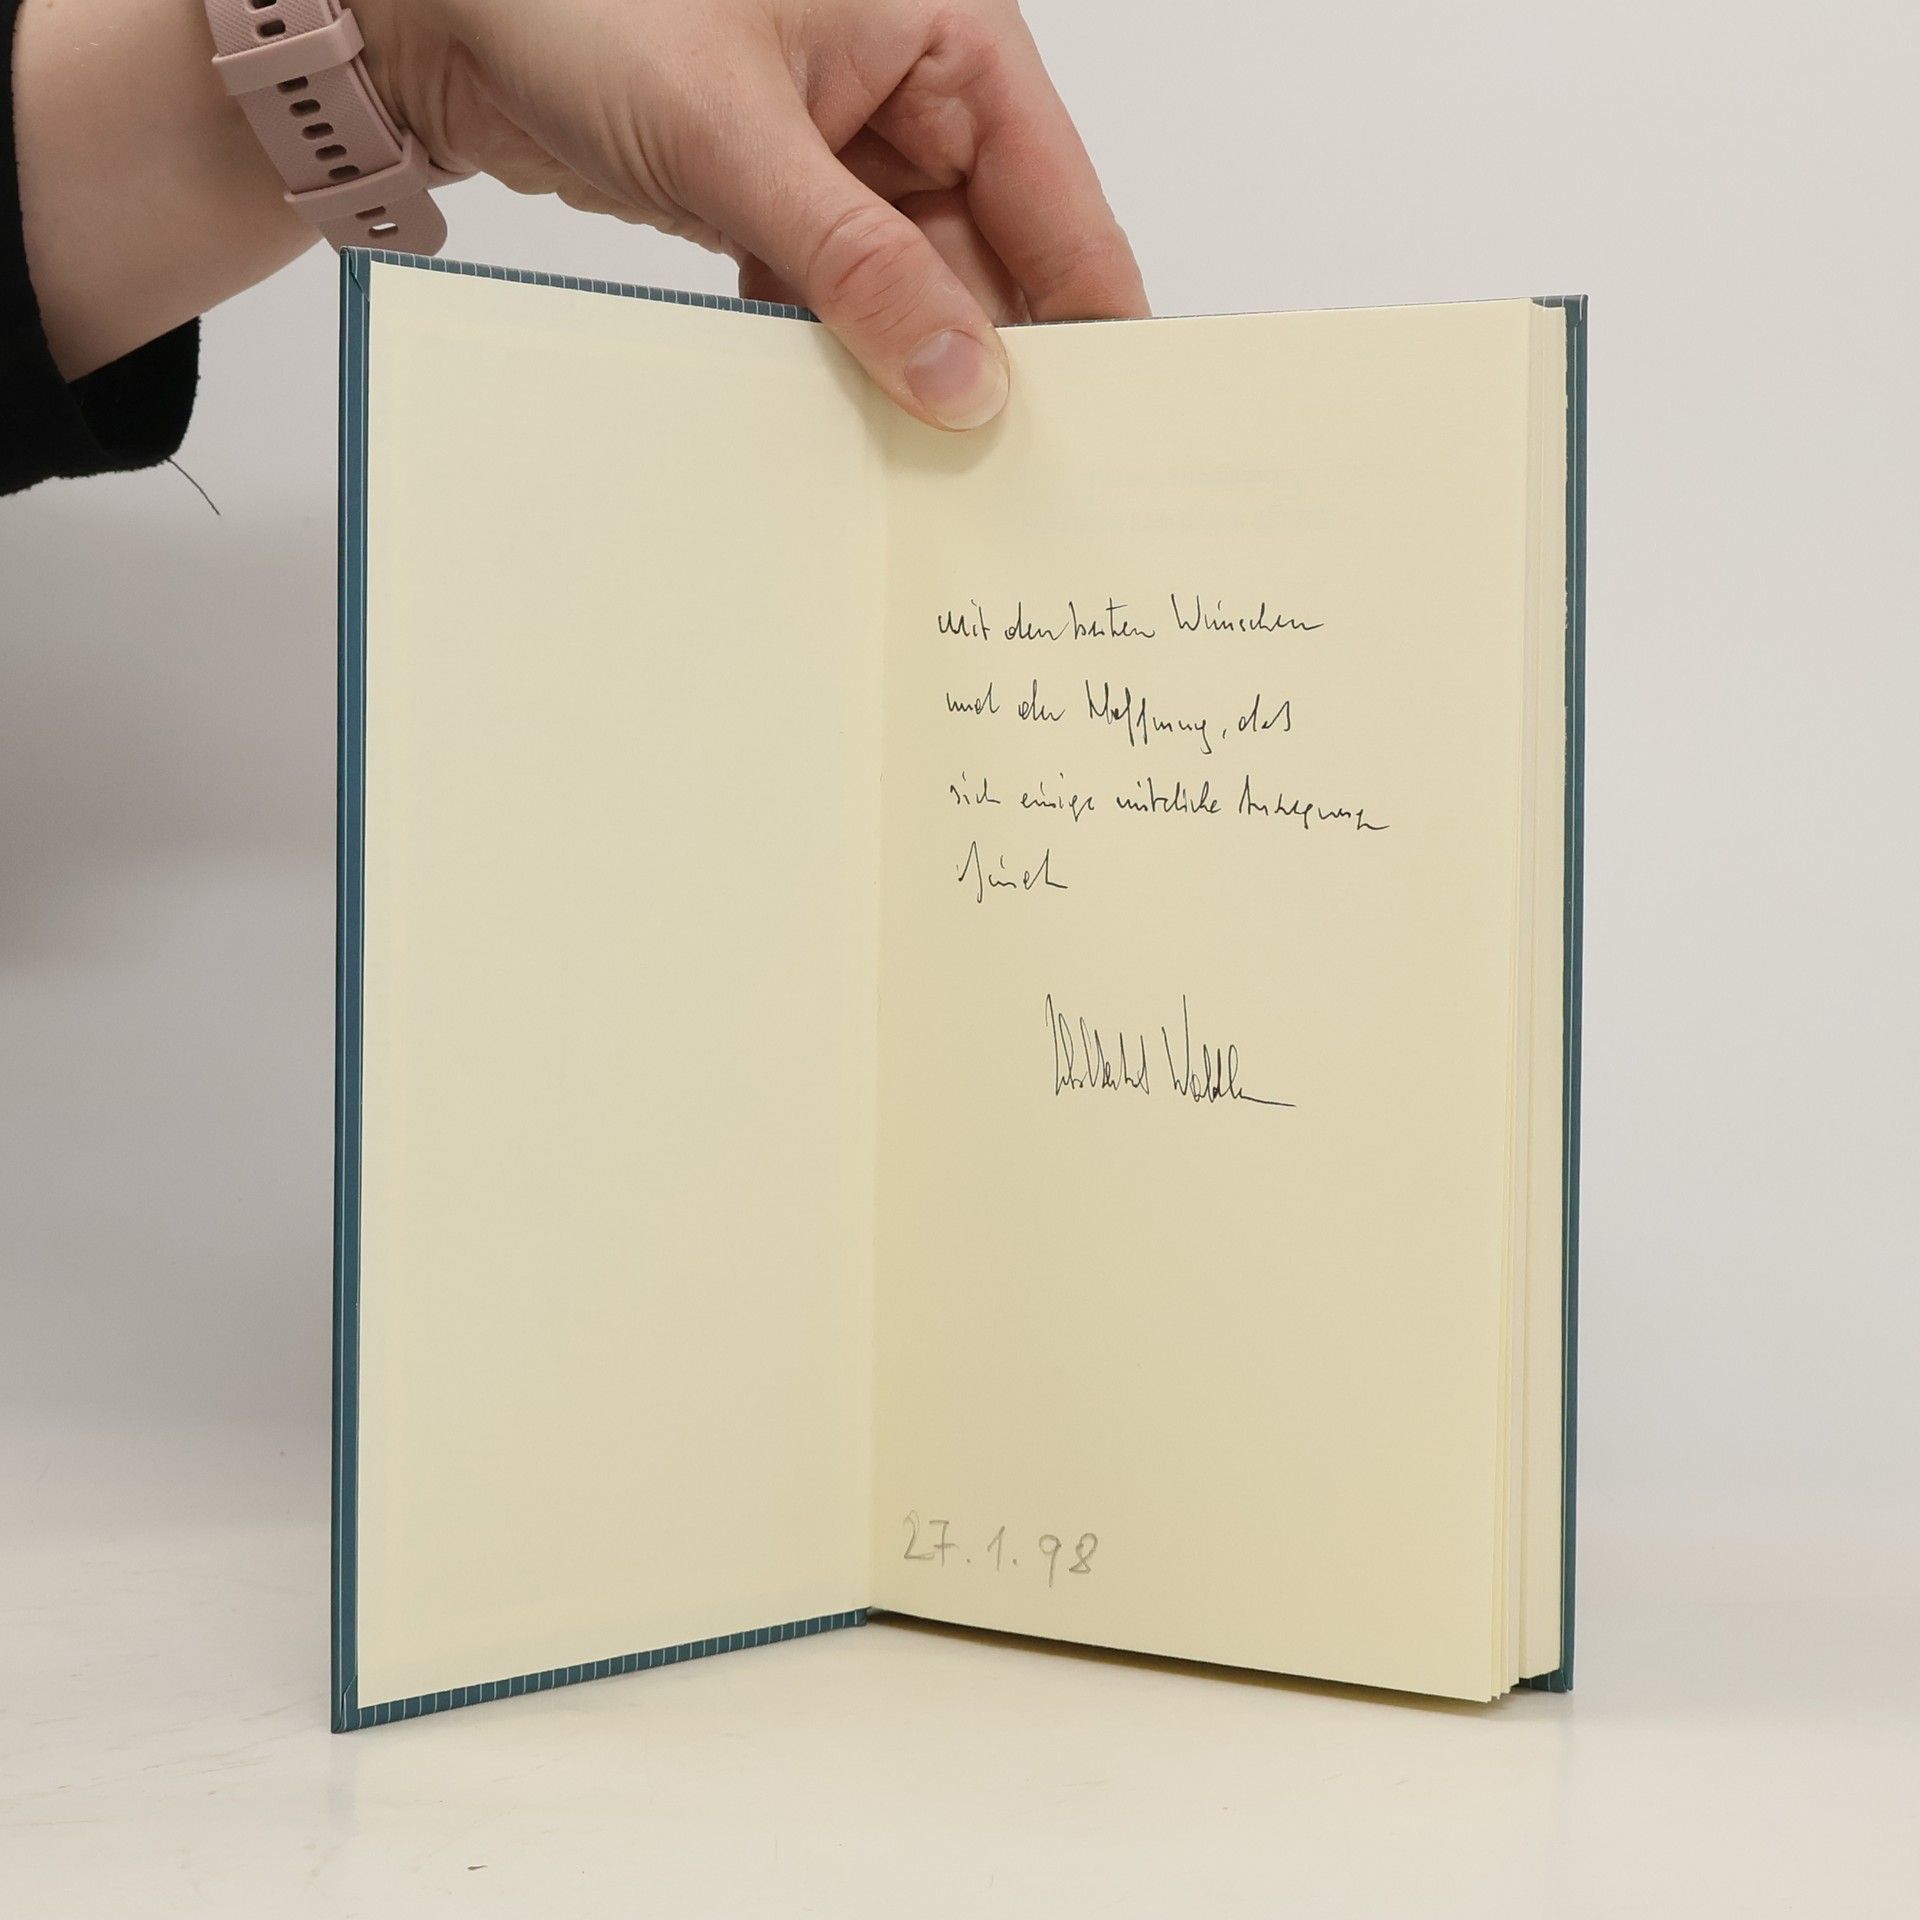 mit den besten Wünschen
und der Hoffnung, daß
sich einige nützliche Anregungen
findet
27.1.98